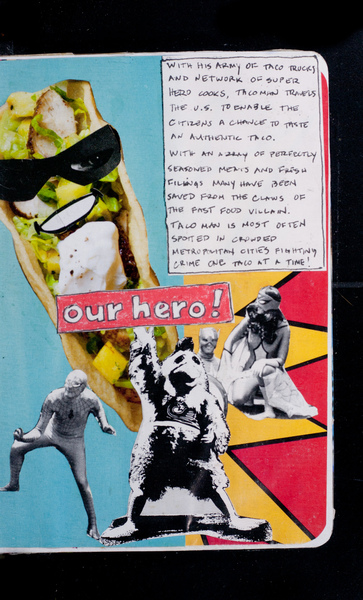 WITH HIS ARMY OF TACO TRUCKS
AND NETWORK OF SUPER
HERO COOKS, TACOMAN TRAVELS
THE U.S. TO ENABLE THE
CITIZENS A CHANCE TO TASTE
AN AUTHENTIC TACO.
WITH AN ARRAY OF PERFECTLY
SEASONED MEATS AND FRESH
FILINGS MANY HAVE BEEN
SAVED FROM THE CLAWS OF
THE FAST FOOD VILLAIN.
TACO MAN IS MOST OFTEN
SPOTTED IN CROWDED
METROPOLITAN CITIES FIGHTING
CRIME ONE TACO AT A TIME!
our hero!